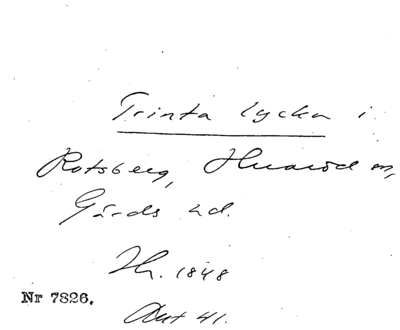 Trinta lycka i
Rotsberg, Huaröd sn,
Gärds hd.
Hr. 1848
Nr 7826.
Akt 41.